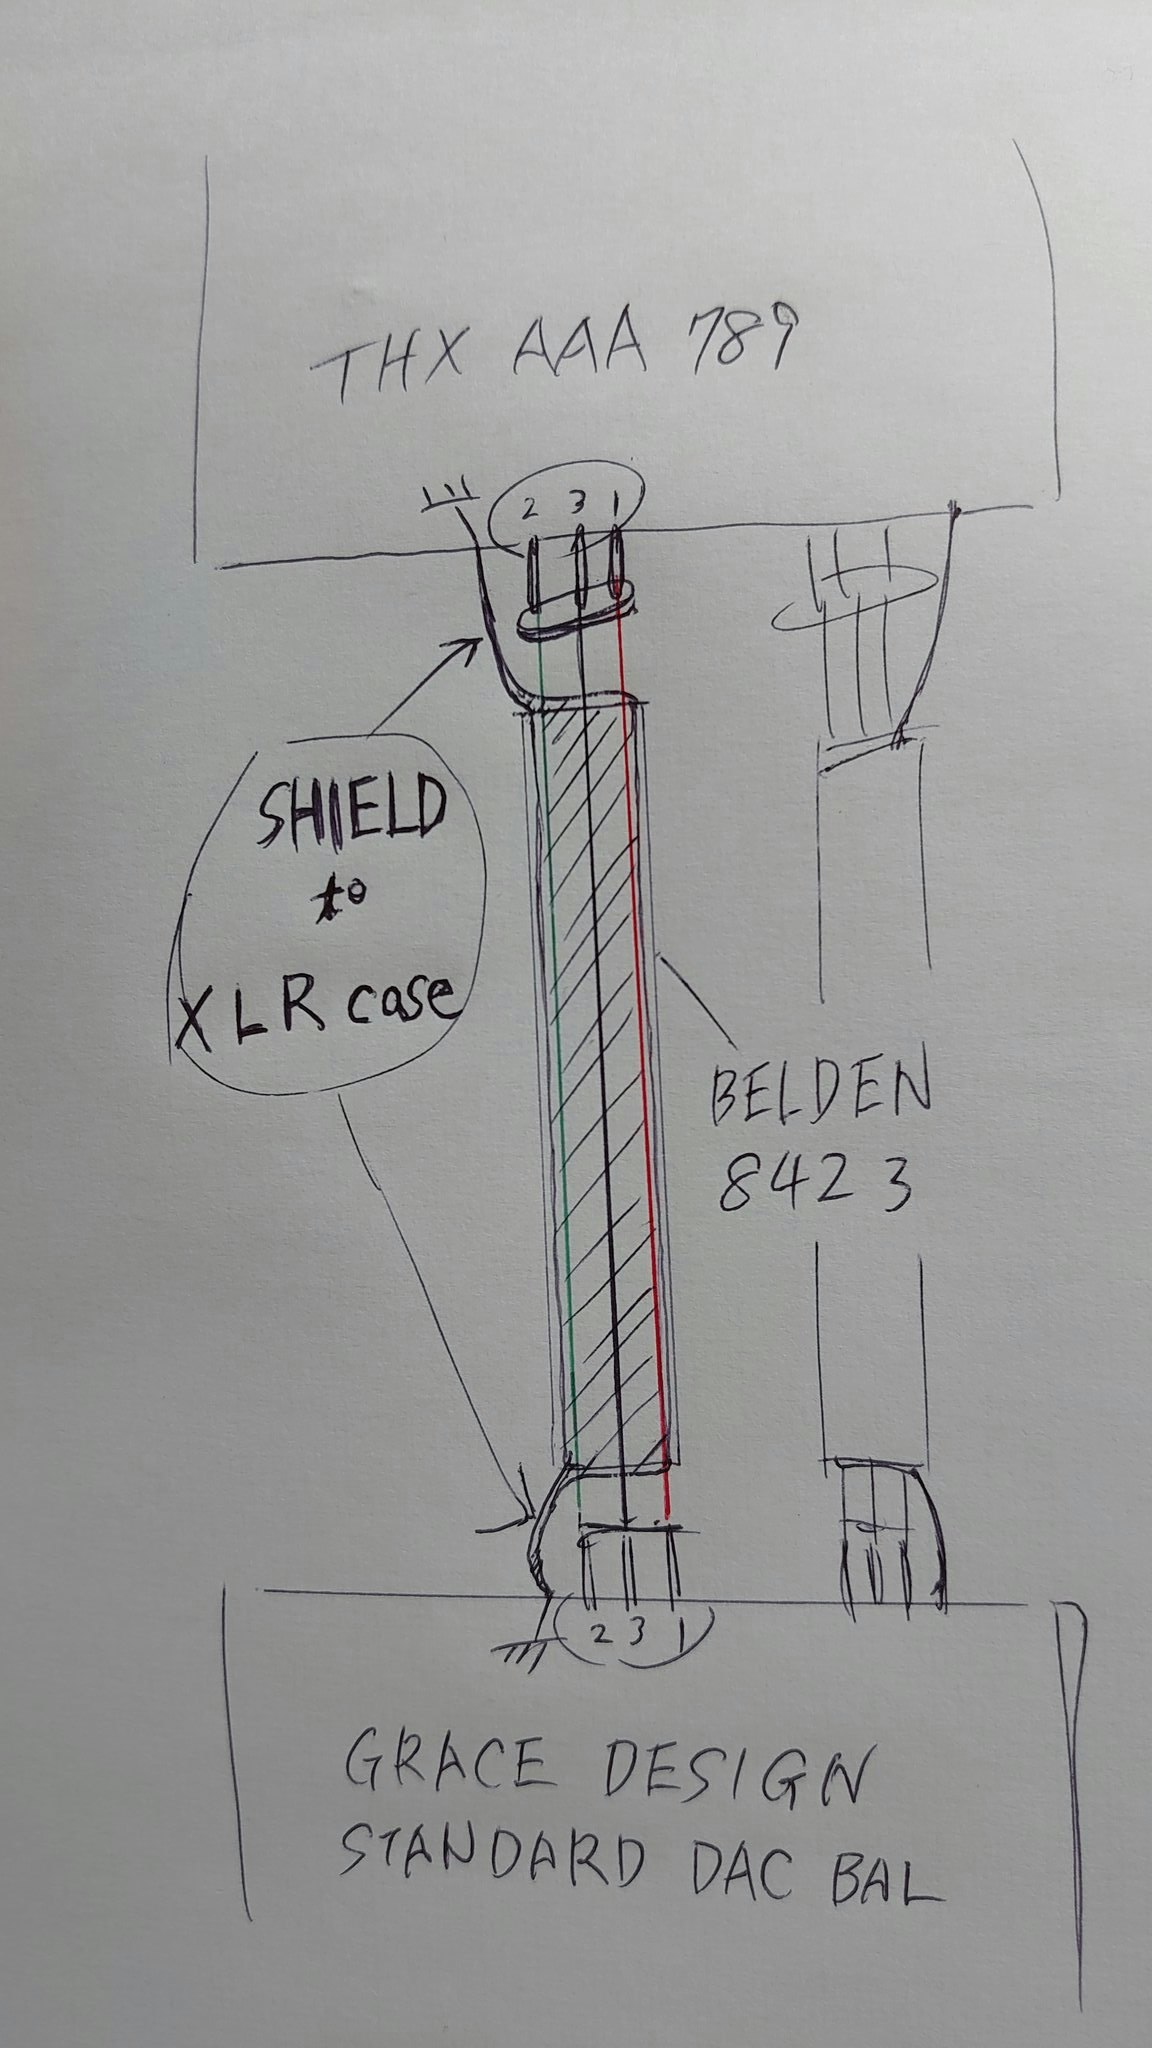 THX AAA 789
2 3 1
SHIELD
to
XLR case
BELDEN
8423
2 3 1
GRACE DESIGN
STANDARD DAC BAL